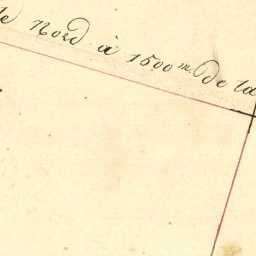 le Nord à 1500 m. de la